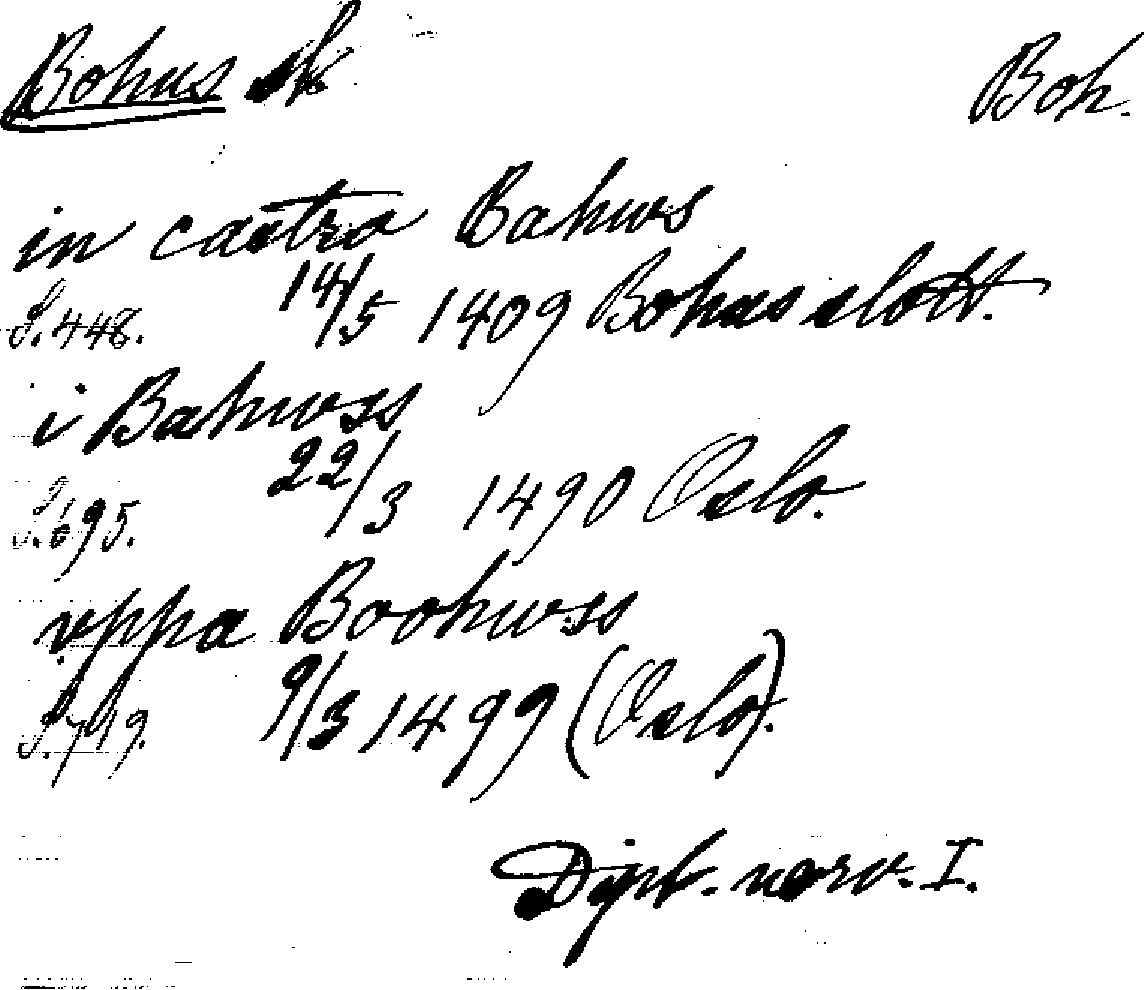 Bohus sk Boh.
in castro Bahws
S. 448. 14/5 1409 Bohus slott.
i Bahwss
S. 695. 22/3 1490 Oslo.
vppa Boohwss
S. 749. 9/3 1499 (Oslo).
Dipl. norv. I.